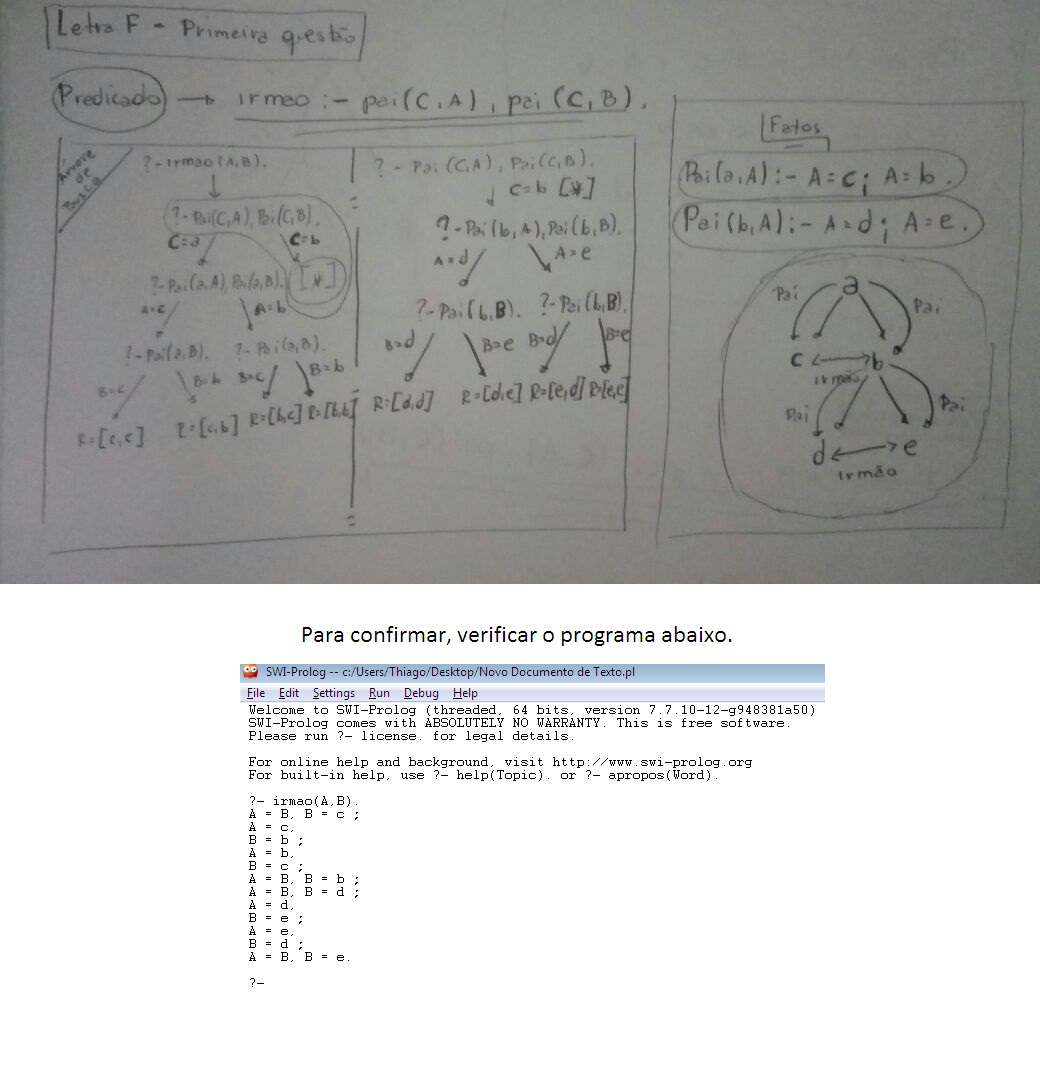 Letra F - Primeira questão
Predicado → irmao :- pai(C,A), pai(C,B).
Árvore de Busca
?- irmao(A,B).
?- Pai(C,A), Pai(C,B).
C=a C=b
?- Pai(a,A), Pai(a,B). [*]
A=c A=b
?- Pai(a,B). ?- Pai(a,B).
B=c B=b B=c B=b
R=[c,c] R=[c,b] R=[b,c] R=[b,b]
? - Pai(C,A), Pai(C,B).
C=b [*]
?- Pai(b,A), Pai(b,B).
A=d A=e
?- Pai(b,B). ?- Pai(b,B).
B=d B=e B=d B=e
R=[d,d] R=[d,e] R=[e,d] R=[e,e]
Fatos
Pai(a,A) :- A=c; A=b.
Pai(b,A) :- A=d; A=e.
a
Pai Pai
c b
irmão
Pai Pai
d e
irmão
Para confirmar, verificar o programa abaixo.
SWI-Prolog -- c:/Users/Thiago/Desktop/Novo Documento de Texto.pl
File Edit Settings Run Debug Help
Welcome to SWI-Prolog (threaded, 64 bits, version 7.7.10-12-g948381a50)
SWI-Prolog comes with ABSOLUTELY NO WARRANTY. This is free software.
Please run ?- license. for legal details.
For online help and background, visit http://www.swi-prolog.org
For built-in help, use ?- help(Topic). or ?- apropos(Word).
?- irmao(A,B).
A = B, B = c ;
A = c,
B = b ;
A = b,
B = c ;
A = B, B = b ;
A = B, B = d ;
A = d,
B = e ;
A = e,
B = d ;
A = B, B = e.
?-